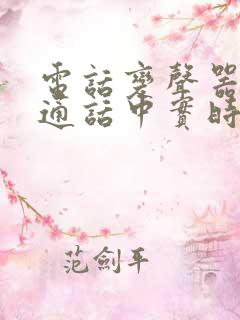 電話變聲器
通話中實時
范劍平